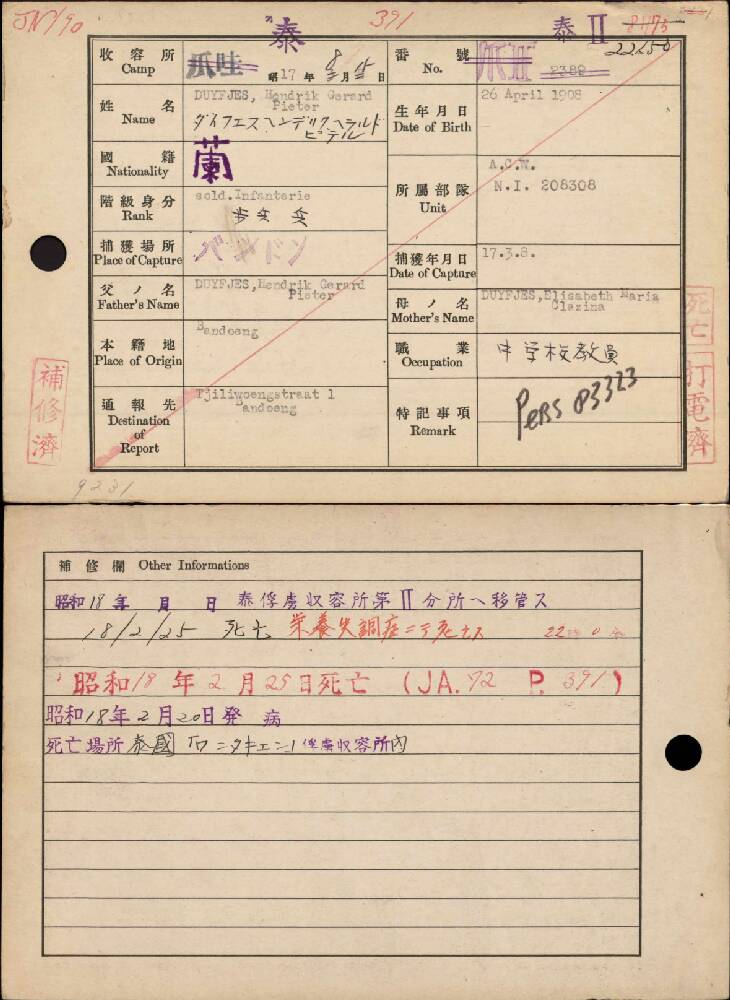 泰
391
泰 II
8175
22250
収容所 Camp
爪哇
昭17年8月15日
番號 No.
爪哇 2382
姓名 Name
DUYFJES, Hendrik Gerard
Pieter
ダイフエス ヘンデリク ヘラルド
ピテル
生年月日 Date of Birth
26 April 1908
國籍 Nationality
蘭
所屬部隊 Unit
A.C.W.
N.I. 208308
階級身分 Rank
sold.Infanterie
捕獲場所 Place of Capture
バンドン
捕獲年月日 Date of Capture
17.3.8.
父ノ名 Father's Name
DUYFJES, Hendrik Gerard
Pieter
母ノ名 Mother's Name
DUYFJES, Elisabeth Maria
Clazina
本籍地 Place of Origin
Bandoeng
職業 Occupation
中学校教員
通報先 Destination of Report
Tjiliwoengstraat 1
Bandoeng
特記事項 Remark
PERS 83323
補修濟
死亡
打電濟
9231
補修欄 Other Informations
昭和18年 月 日 泰俘虜収容所第II分所ヘ移管ス
18/2/25 死亡 栄養失調症ニテ死亡ス 22時0分
昭和18年2月25日死亡 (JA.92 P.391)
昭和18年2月20日発病
死亡場所 泰國 俘虜収容所内